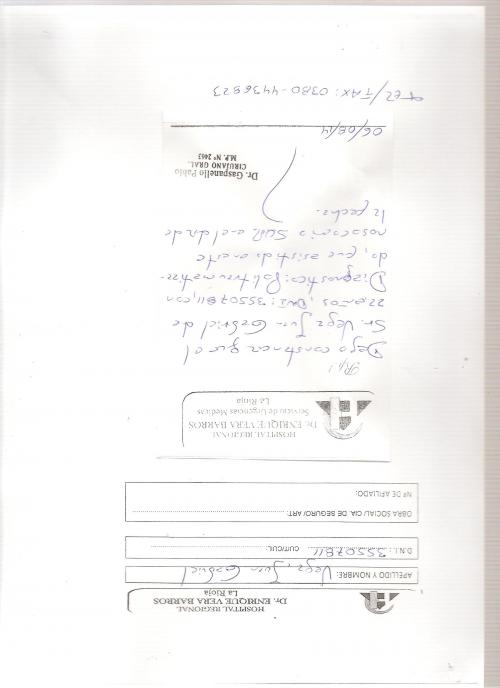 HOSPITAL REGIONAL
Dr. ENRIQUE VERA BARROS
La Rioja
APELLIDO Y NOMBRE: Vega, Juan Gabriel
D.N.I.: 35507811 CUIT/CUIL:
OBRA SOCIAL/ CIA. DE SEGURO/ ART:
Nº DE AFILIADO:
HOSPITAL REGIONAL
Dr. ENRIQUE VERA BARROS
Servicio de Urgencias Médicas
La Rioja
Rp/
Dejo constancia que el
Sr. Vega Juan Gabriel de
22 años, DNI: 35507811, con
Diagnostico: Politraumatiza-
do, fue asistido en este
nosocomio en el dia de
la fecha.
Dr. Gaspanello Pablo
CIRUJANO GRAL.
M.P. Nº 2463
06/08/14
TEL/FAX: 0380-4436823